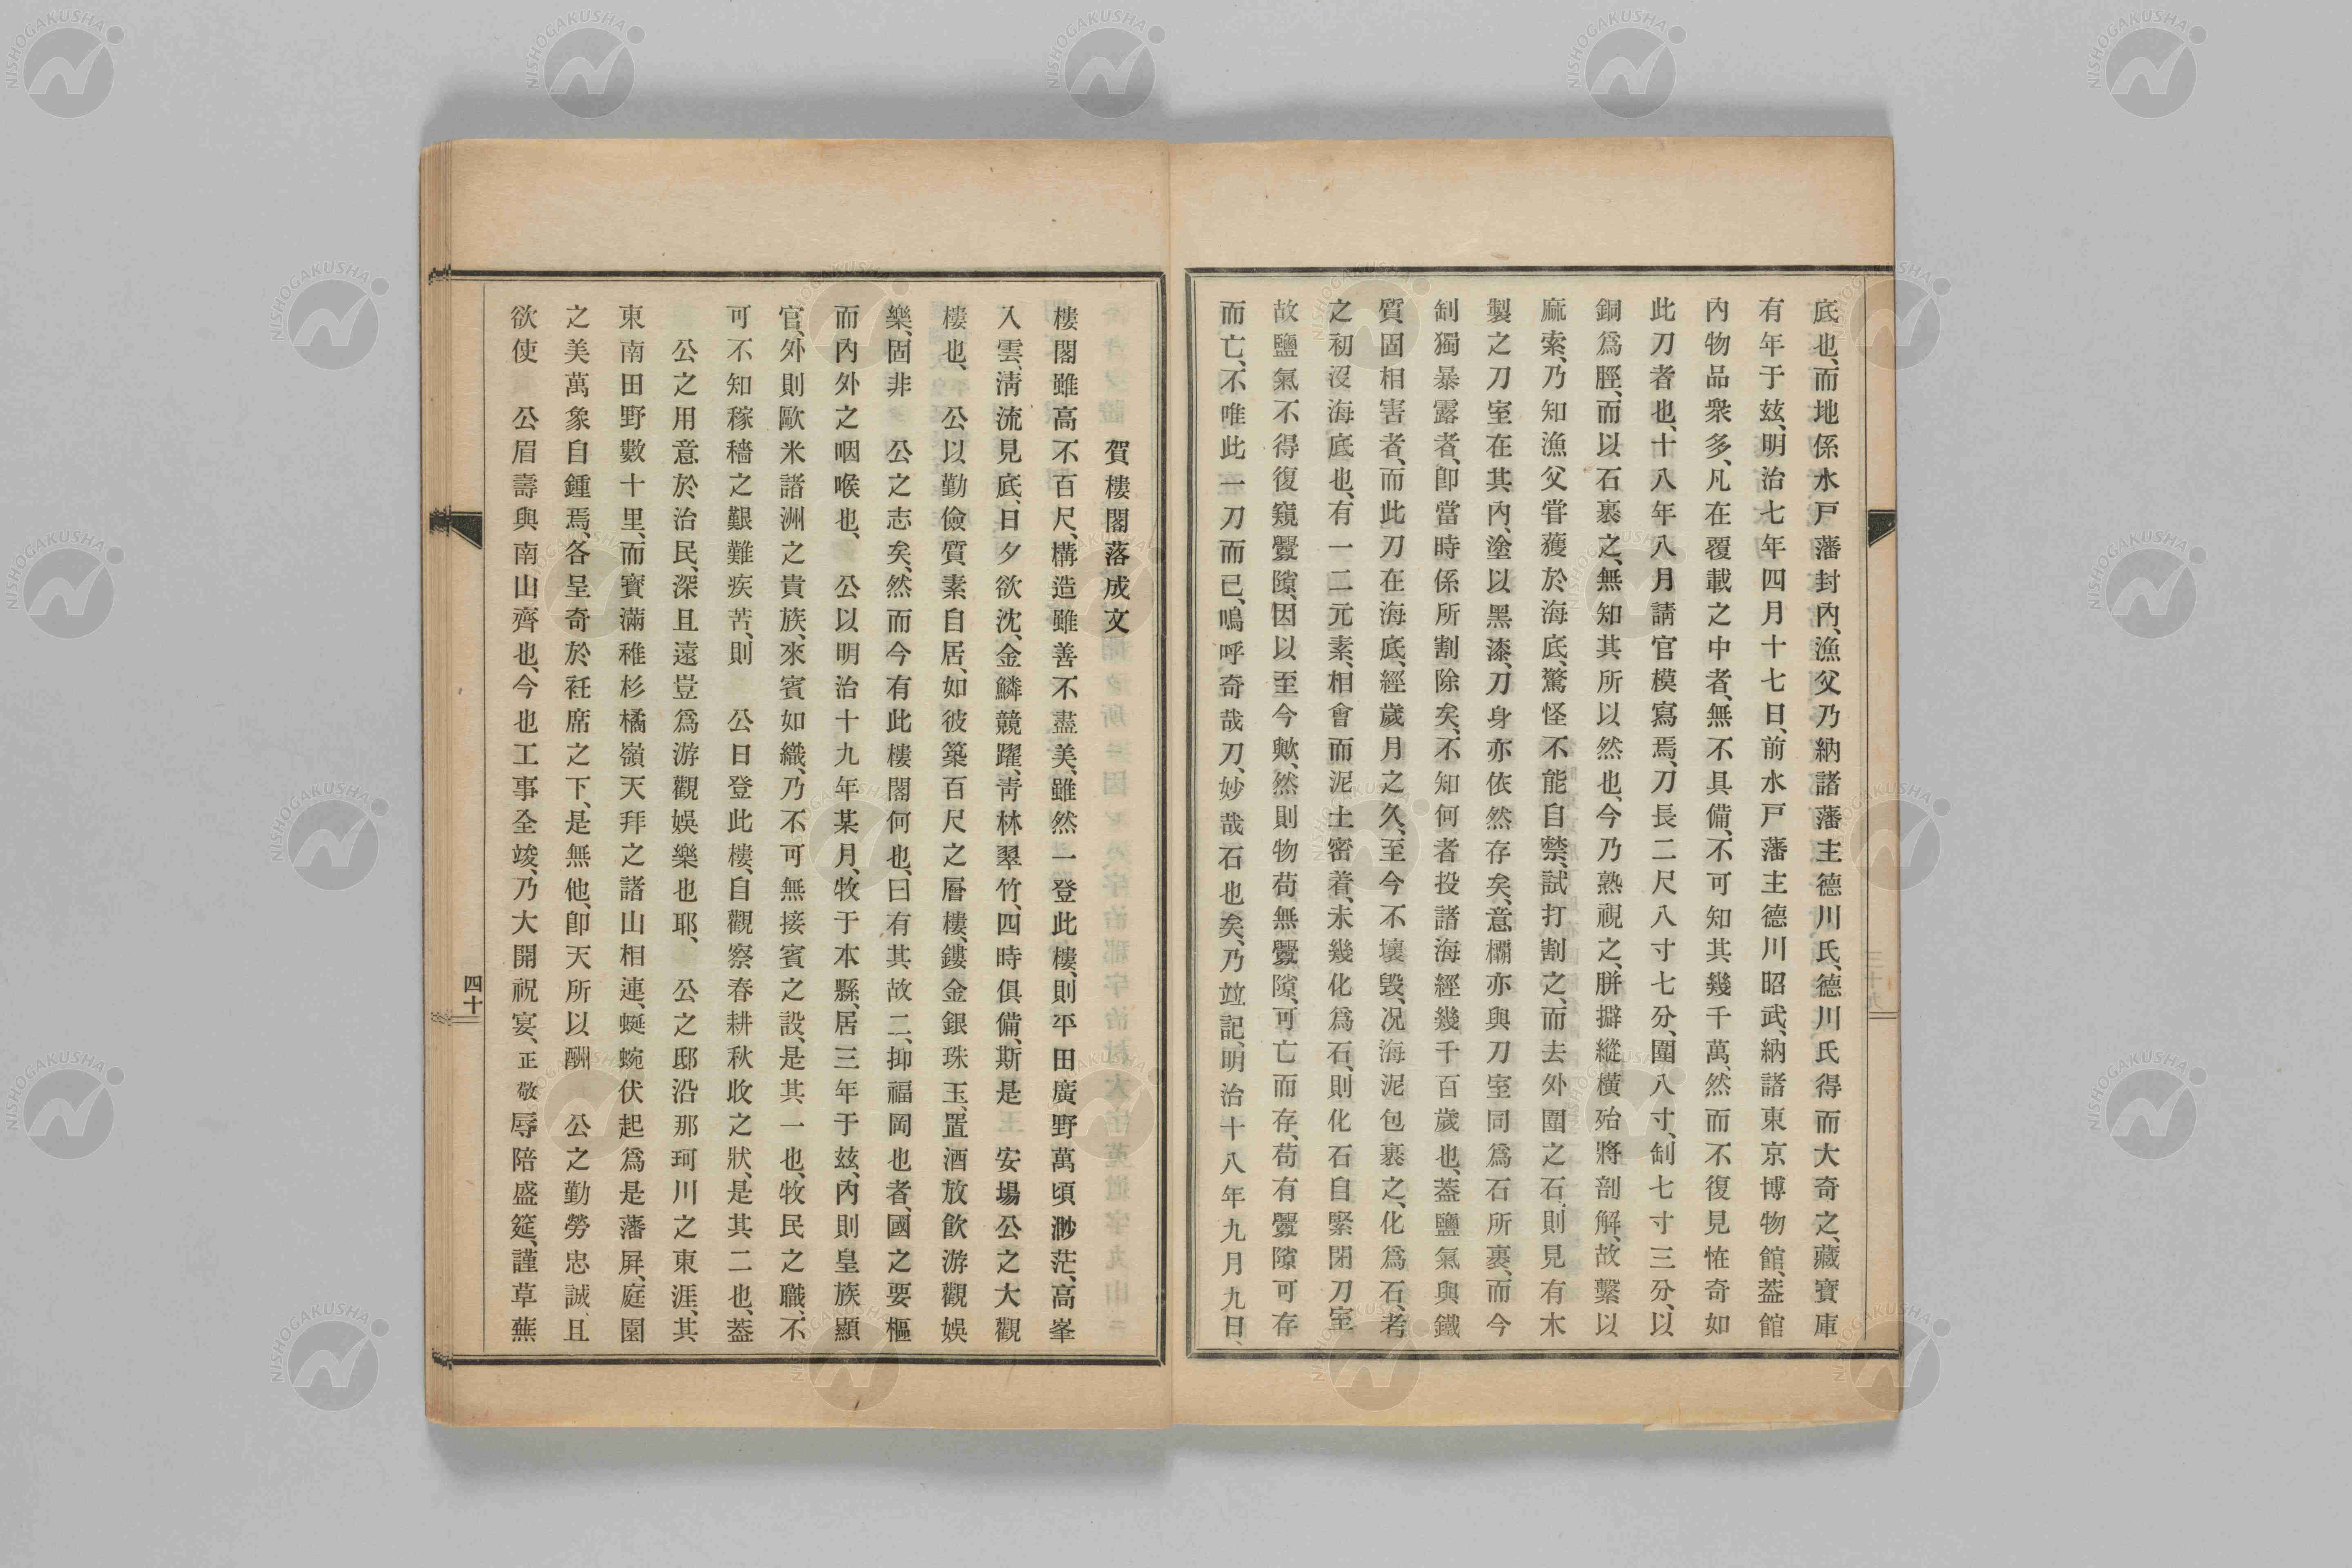 底也、而地係水戸藩封內、漁父乃納諸藩主德川氏、德川氏得而大奇之、藏寶庫
有年于玆、明治七年四月十七日、前水戸藩主德川昭武、納諸東京博物館、葢館
內物品衆多、凡在覆載之中者、無不具備、不可知其幾千萬、然而不復見恠奇如
此刀者也、十八年八月請官模寫焉、刀長二尺八寸七分、圍八寸、制七寸三分、以
銅爲脛、而以石裹之、無知其所以然也、今乃熟視之、胼擗縱橫殆將剖解、故繫以
麻索、乃知漁父嘗獲於海底、驚怪不能自禁、試打割之、而去外圍之石、則見有木
製之刀室在其內、塗以黑漆、刀身亦依然存矣、意欛亦與刀室同爲石所裹、而今
制獨暴露者、卽當時係所割除矣、不知何者投諸海經幾千百歲也、葢鹽氣與鐵
質、固相害者、而此刀在海底、經歲月之久、至今不壞毀、况海泥包裹之、化爲石、者
之初沒海底也、有一二元素、相會而泥土密着、未幾化爲石、則化石自緊閉刀室
故鹽氣不得復窺釁隙、因以至今歟、然則物苟無釁隙、可亡而存、苟有釁隙可存
而亡、不唯此一刀而已、嗚呼奇哉刀、妙哉石也矣、乃竝記、明治十八年九月九日、
賀樓閣落成文
樓閣雖高不百尺、構造雖善不盡美、雖然一登此樓、則平田廣野萬頃渺茫、高峯
入雲、淸流見底、日夕欲沈、金鱗競躍、靑林翠竹、四時俱備、斯是 安場公之大觀
樓也、 公以勤儉質素自居、如彼築百尺之層樓、鏤金銀珠玉、置酒放飮游觀娛
樂、固非 公之志矣、然而今有此樓閣何也、曰有其故二、抑福岡也者、國之要樞
而內外之咽喉也、 公以明治十九年某月、牧于本縣、居三年于玆、內則皇族顯
官、外則歐米諸洲之貴族、來賓如織、乃不可無接賓之設、是其一也、牧民之職、不
可不知稼穡之艱難疾苦、則 公日登此樓、自觀察春耕秋收之狀、是其二也、葢
公之用意於治民、深且遠豈爲游觀娛樂也耶、 公之邸沿那珂川之東涯、其
東南田野數十里、而寶滿稚杉橘嶺天拜之諸山相連、蜒蜿伏起爲是藩屏、庭園
之美萬象自鍾焉、各呈奇於衽席之下、是無他、卽天所以酬 公之勤勞忠誠、且
欲使 公眉壽與南山齊也、今也工事全竣、乃大開祝宴、正敬辱陪盛筵、謹草蕪
四十